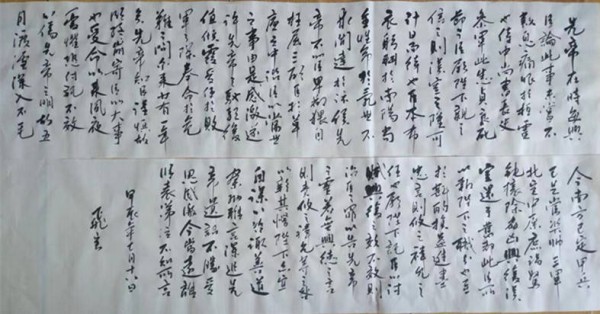 先帝在時每與
臣論此事未嘗不
嘆息痛恨於桓靈
也侍中尚書長史
參軍此悉貞良死
節之臣願陛下親之
信之則漢室之隆可
計日而待也臣本布
衣躬耕於南陽苟
全性命於亂世不
求聞達於諸侯先
帝不以臣卑鄙猥自
枉屈三顧臣於草
廬之中諮臣以當世
之事由是感激遂
許先帝以驅馳後
值傾覆受任於敗
軍之際奉命於危
難之間爾來廿有一年
矣先帝知臣謹慎故
臨崩寄臣以大事
也受命以來夙夜
憂懼恐付託不效
以傷先帝之明故五
月渡瀘深入不毛
今南方已定甲兵
已足當獎帥三軍
北定中原庶竭駑
鈍攘除奸凶興復漢
室還於舊都此臣所
以報陛下之職分也至
於斟酌損益進盡
忠言則攸之禕允之
任也願陛下託臣以討
賊興復之效不效則
治臣之罪以告先帝
之靈若無興德之言
則責攸之禕允等之咎
以彰其慢陛下亦宜
自謀以諮諏善道
察納雅言深追先
帝遺詔臣不勝受
恩感激今當遠離
臨表涕泣不知所云
甲辰年十一月十八日